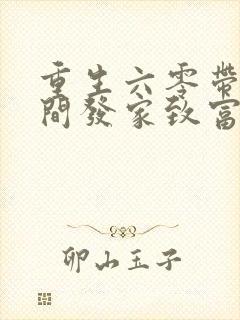 重生六零帶
間發家致富
卯山玉子